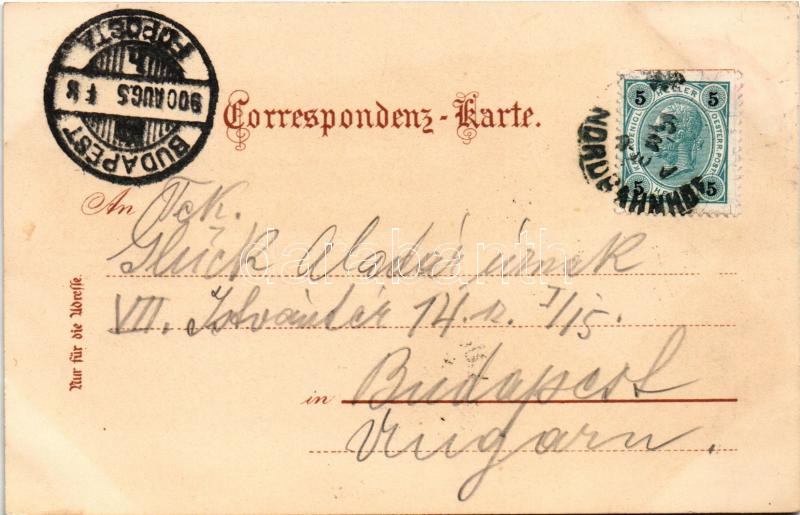 BUDAPEST
900 AUG 5
FŐPOSTA
Correspondenz-Karte.
5 HELLER 5
KAIS. KOENIGL. OESTERR. POST.
5 5
WIEN
NORDBAHNHOF
An Tek.
Glück Aladár úrnak
VII. Istvántér 14. sz. I/15.
in Budapest
Ungarn.
Nur für die Adresse.
darabanth